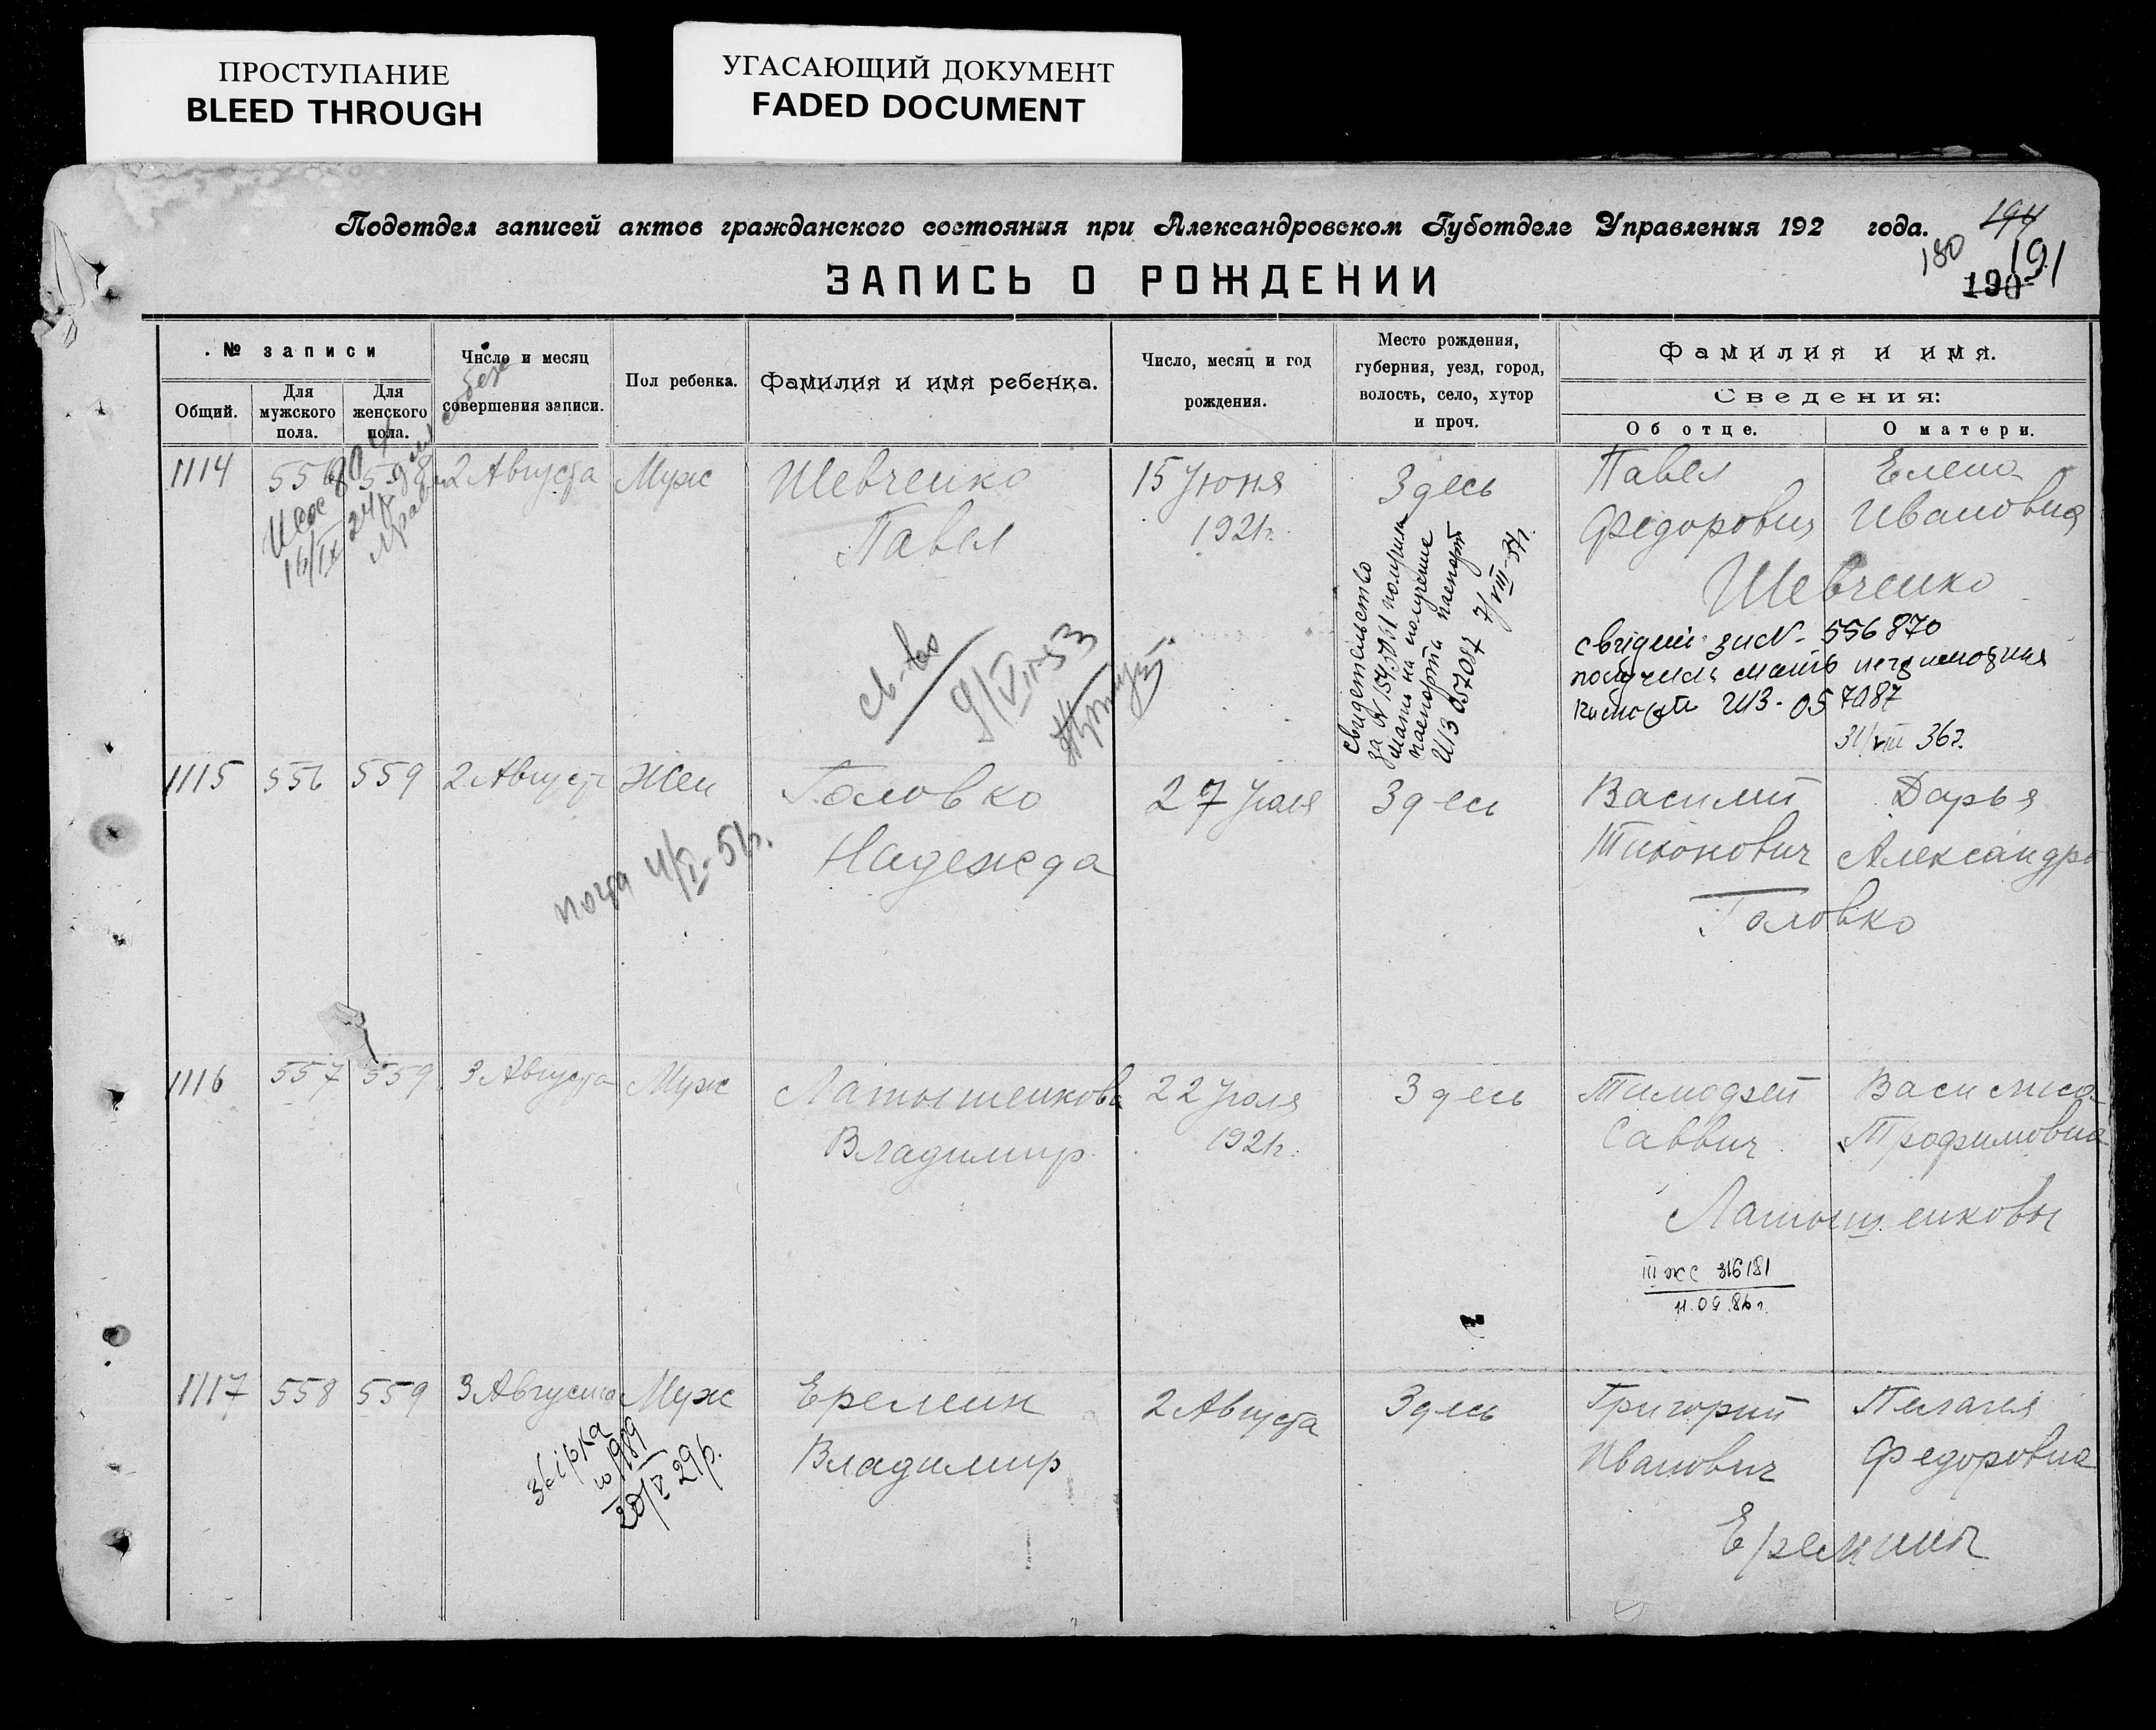 ПРОСТУПАНИЕ
BLEED THROUGH
УГАСАЮЩИЙ ДОКУМЕНТ
FADED DOCUMENT
Подотдел записей актов гражданского состояния при Александровском Губотделе Управления 192 года.
194
180
191
190
ЗАПИСЬ О РОЖДЕНИИ
№ записи
Общий.
Для мужского пола.
Для женского пола.
Число и месяц
совершения записи.
Пол ребенка.
Фамилия и имя ребенка.
Число, месяц и год
рождения.
Место рождения,
губерния, уезд, город,
волость, село, хутор
и проч.
Фамилия и имя.
Сведения:
Об отце.
О матери.
1114 556 558 2 Августа Муж Шевченко 15 Июня Здесь Павел Елена
Павел 1921г. Федорович Ивановна
Шевченко
16/IX
св-во
9/VII-53
свидетельство
за № получила
мать на получение
паспорта паспорт
ШЗ 057087 7/VIII-34г.
556870
получила мать
ШЗ-057087
31/VIII 36г.
1115 556 559 2 Август Жен Головко 27 Июля Здесь Василий Дарья
Надежда Тихонович Александро
Головко
4/I-51р.
1116 557 559 3 Августа Муж Латышенков 22 Июля Здесь Тимофей Василиса
Владимир 1921г. Саввич Трофимовна
Латышенковы
III ЖС 316181
11.09.86г.
1117 558 559 3 Августа Муж Еремин 2 Августа Здесь Григорий Пелагея
Владимир Иванович Федоровна
Еремины
звірка
ю/989
20/V 29р.